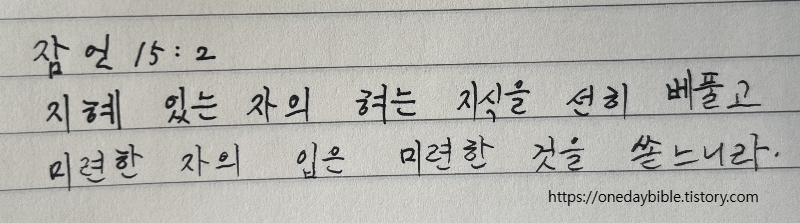 잠언 15:2
지혜 있는 자의 혀는 지식을 선히 베풀고
미련한 자의 입은 미련한 것을 쏟느니라.
https://onedaybible.tistory.com